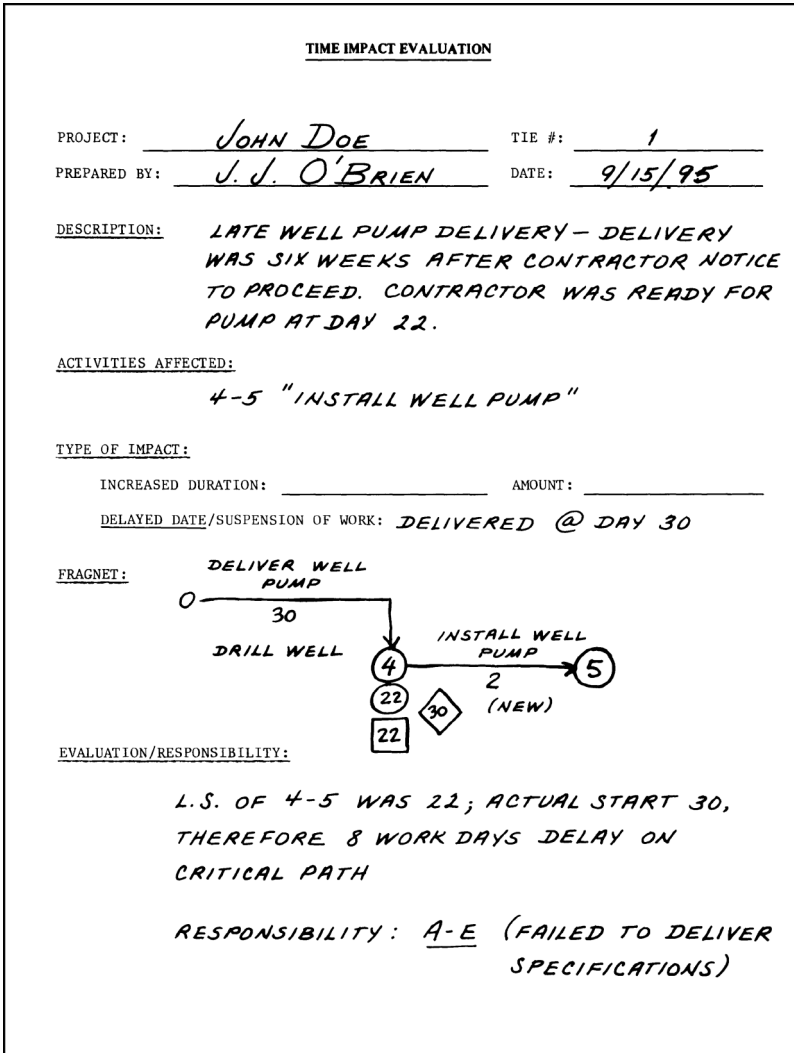 TIME IMPACT EVALUATION
PROJECT: JOHN DOE TIE #: 1
PREPARED BY: J. J. O'BRIEN DATE: 9/15/95
DESCRIPTION: LATE WELL PUMP DELIVERY — DELIVERY
WAS SIX WEEKS AFTER CONTRACTOR NOTICE
TO PROCEED. CONTRACTOR WAS READY FOR
PUMP AT DAY 22.
ACTIVITIES AFFECTED:
4-5 "INSTALL WELL PUMP"
TYPE OF IMPACT:
INCREASED DURATION: AMOUNT:
DELAYED DATE/SUSPENSION OF WORK: DELIVERED @ DAY 30
FRAGNET:
DELIVER WELL
PUMP
0
30
DRILL WELL
4
INSTALL WELL
PUMP
5
2
(NEW)
22
30
22
EVALUATION/RESPONSIBILITY:
L.S. OF 4-5 WAS 22; ACTUAL START 30,
THEREFORE 8 WORK DAYS DELAY ON
CRITICAL PATH
RESPONSIBILITY: A-E (FAILED TO DELIVER
SPECIFICATIONS)